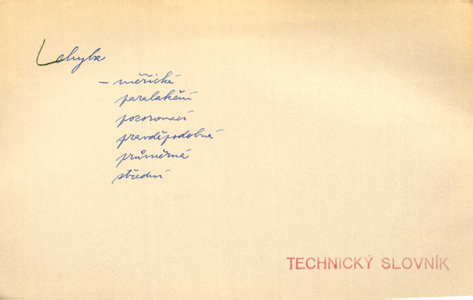 chyba
– měřická
paralakční
pozorovací
pravděpodobná
průměrná
střední
TECHNICKÝ SLOVNÍK